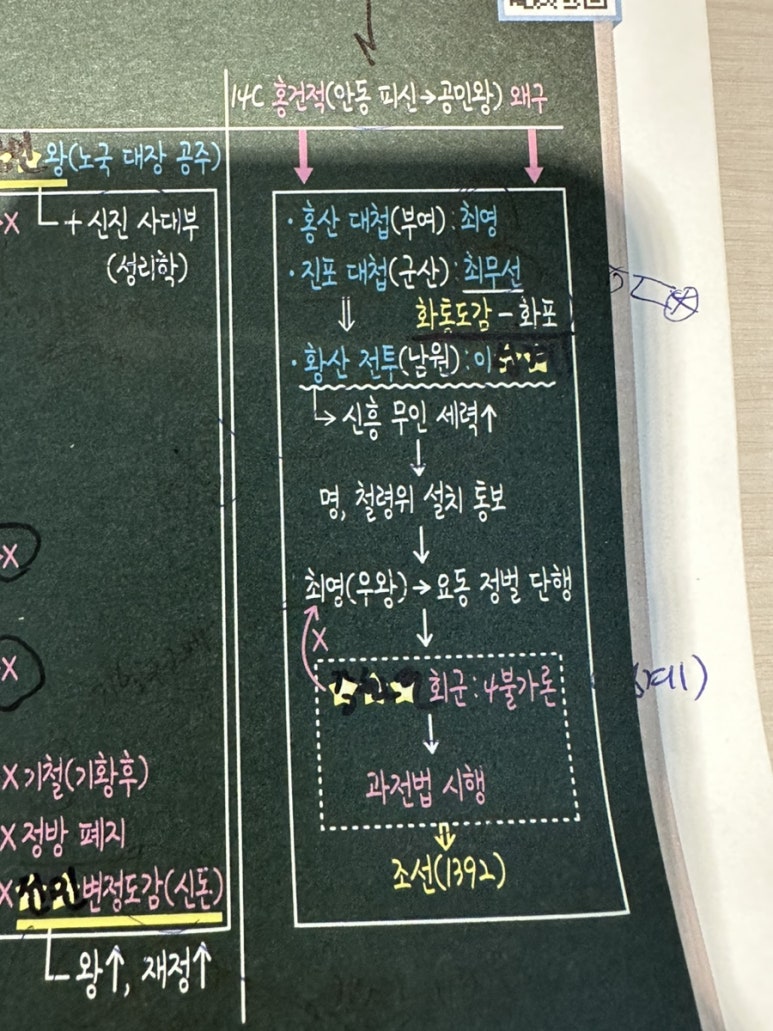 14C 홍건적(안동 피신→공민왕) 왜구
왕(노국 대장 공주)
X ㄴ+신진 사대부
(성리학)
X
X
X 기철(기황후)
X 정방 폐지
X 전민변정도감(신돈)
ㄴ왕↑, 재정↑
· 홍산 대첩(부여) : 최영
· 진포 대첩(군산) : 최무선
⇓ 화통도감 - 화포
· 황산 전투(남원) : 이
↳ 신흥 무인 세력↑
↓
명, 철령위 설치 통보
↓
최영(우왕) → 요동 정벌 단행
X ↓
회군 : 4불가론
↓
과전법 시행
⇓
조선(1392)